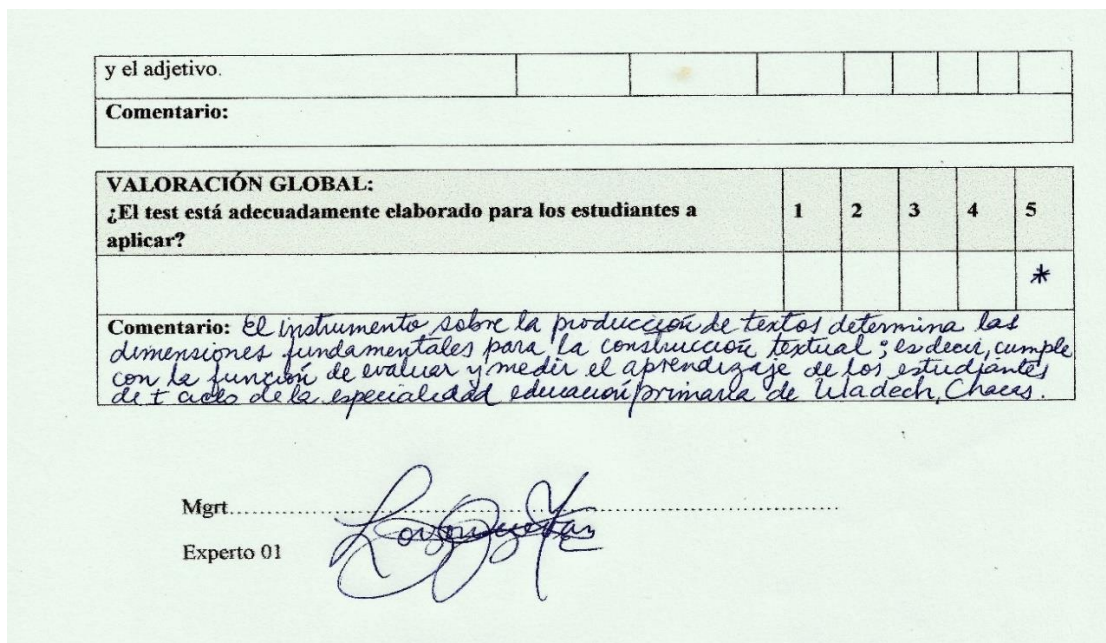 y el adjetivo.
Comentario:
VALORACIÓN GLOBAL:
¿El test está adecuadamente elaborado para los estudiantes a
aplicar?
1 2 3 4 5
*
Comentario: El instrumento sobre la producción de textos determina las
dimensiones fundamentales para la construcción textual; es decir, cumple
con la función de evaluar y medir el aprendizaje de los estudiantes
de I ciclo de la especialidad educación primaria de Uladech, Chacas.
Mgrt
Experto 01